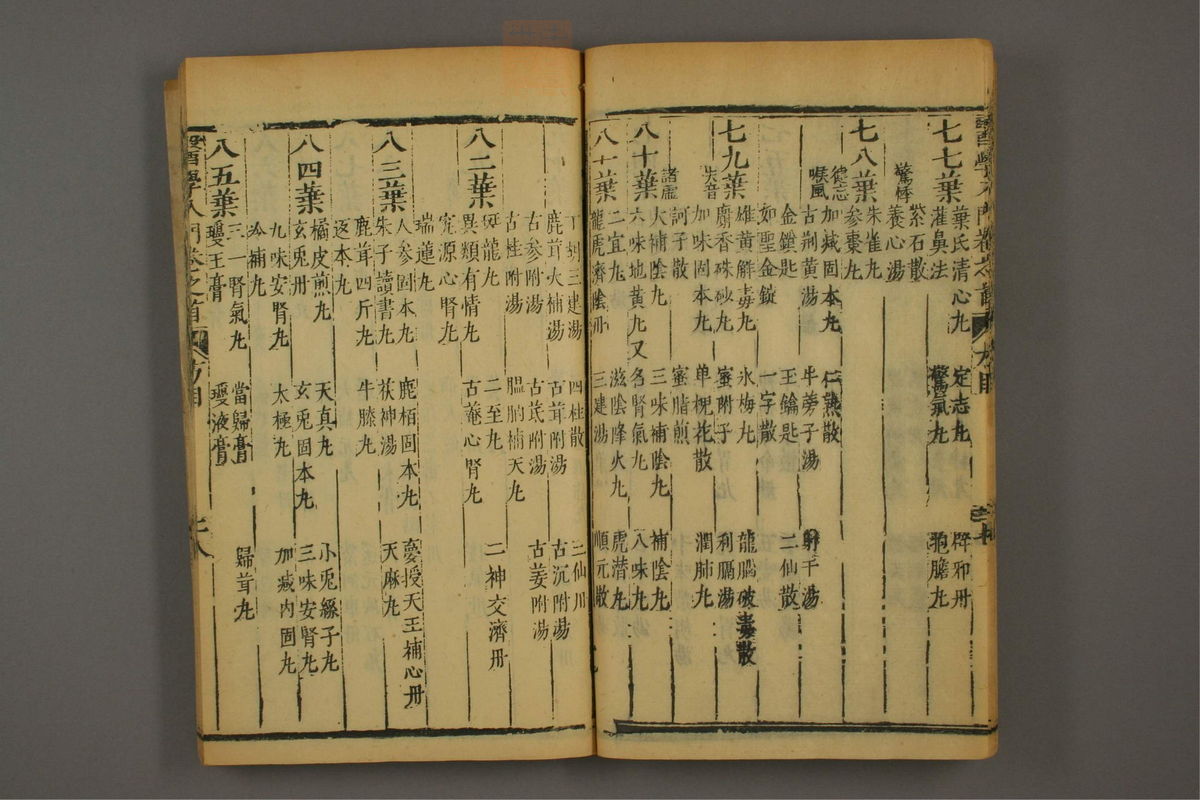 七七葉 葉氏清心丸 定志丸 辟邪丹
灌鼻法 驚氣丸 抱膽丸
紫石散
驚悸 養心湯
朱雀丸
七八葉 參棗丸
健忘 加減固本丸 仁熟散
喉風 古荆黄湯 牛蒡子湯 射干湯
金鎖匙 玉鑰匙 二仙散
如聖金錠 一字散
雄黄解毒丸 氷梅丸 龍腦破毒散
七九葉 麝香硃砂丸 蜜附子 利膈湯
失音 加味固本丸 單槐花散 潤肺丸
訶子散 蜜脂煎
諸虛 大補陰丸 三味補陰丸 補陰丸
八十葉 六味地黄丸 又名腎氣丸 八味丸
二宜丸 滋陰降火丸 虎潜丸
八一葉 龍虎濟陰丹 三建湯 順元散
丁胡三建湯 四柱散 三仙丹
鹿茸大補湯 古茸附湯 古沉附湯
古參附湯 古芪附湯 古姜附湯
古桂附湯 膃肭補天丸
斑龍丸 二至丸 二神交濟丹
八二葉 異類有情丸 古菴心腎丸
究源心腎丸
瑞蓮丸
人參固本丸 鹿栢固本丸 夢授天王補心丹
八三葉 朱子讀書丸 茯神湯 天麻丸
鹿茸四斤丸 牛膝丸
逐本丸
橘皮煎丸 天真丸 小兎絲子丸
八四葉 玄兎丹 玄兎固本丸 三味安腎丸
九味安腎丸 太極丸 加減内固丸
冷補丸
三一腎氣丸 當歸膏 歸茸丸
八五葉 瓊玉膏 瓊液膏
醫學入門卷之首 方目